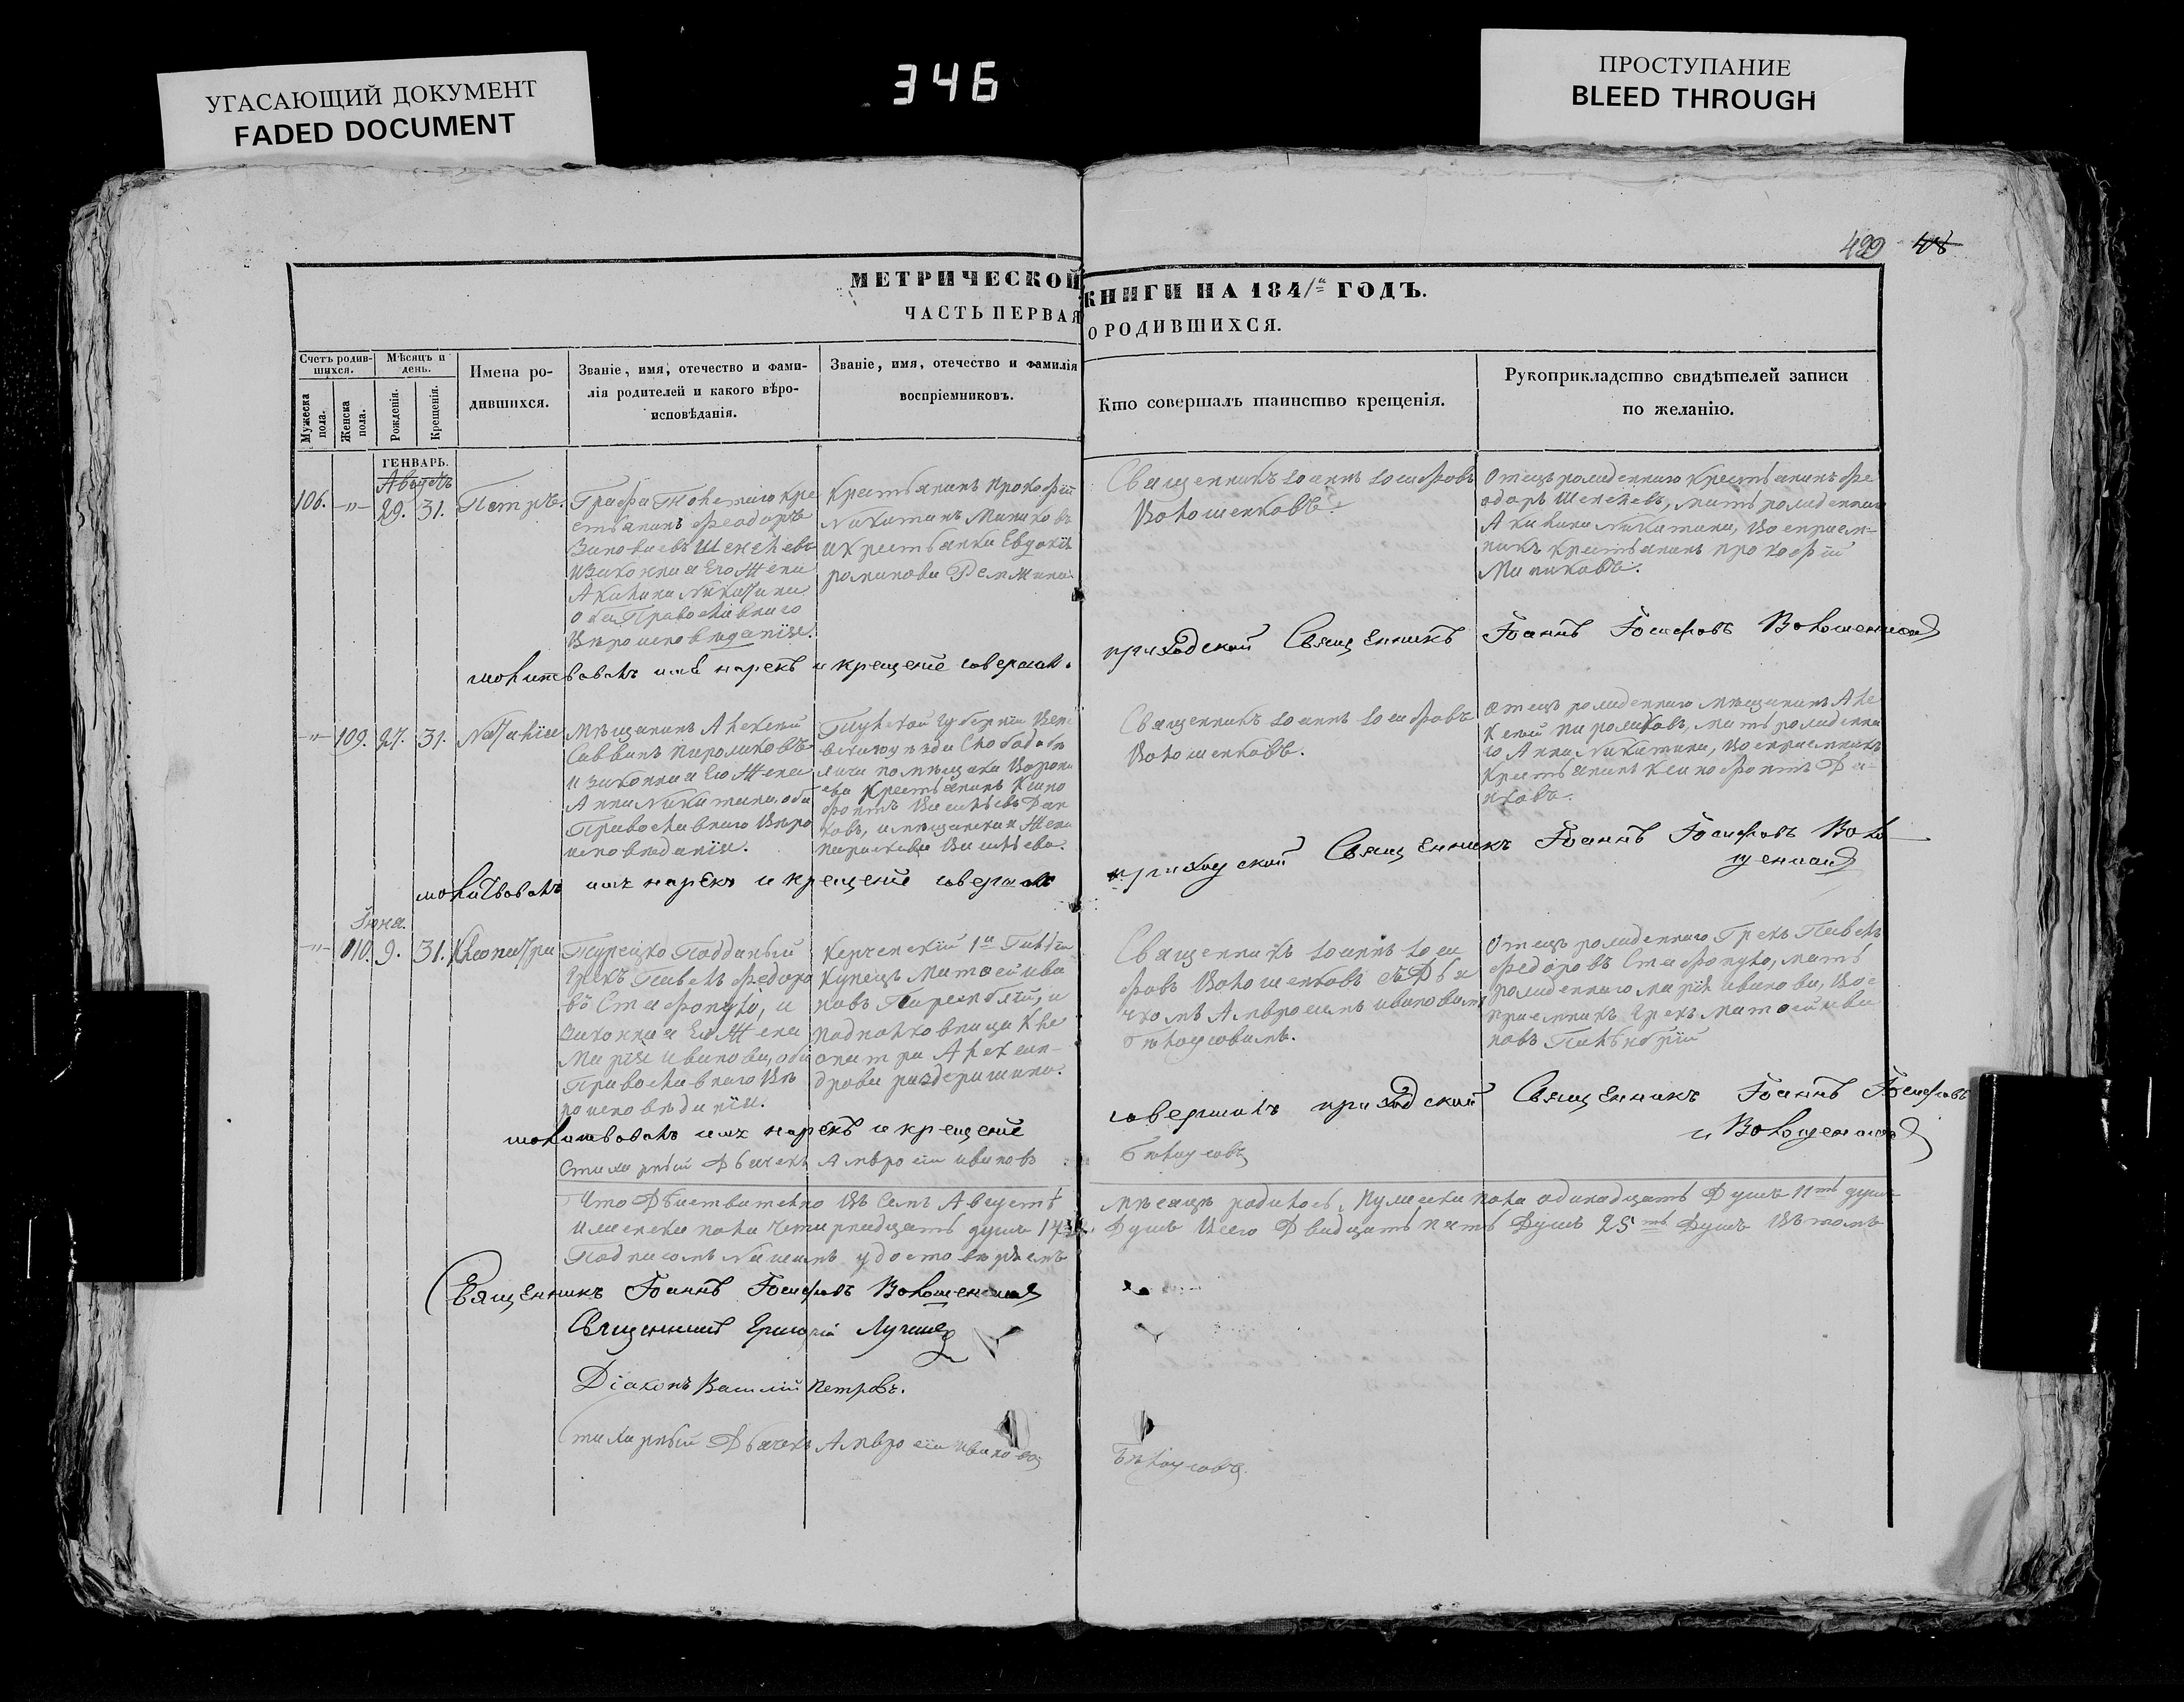 УГАСАЮЩИЙ ДОКУМЕНТ
FADED DOCUMENT
346
ПРОСТУПАНИЕ
BLEED THROUGH
429
МЕТРИЧЕСКОЙ КНИГИ НА 1841 ГОДЪ.
ЧАСТЬ ПЕРВАЯ О РОДИВШИХСЯ.
Счетъ родив-
шихся.
Мѣсяцъ и
день.
Мужеска
пола.
Женска
пола.
Рожденія.
Крещенія.
Имена ро-
дившихся.
Званіе, имя, отечество и фами-
лія родителей и какого вѣро-
исповѣданія.
Званіе, имя, отечество и фамилія
воспріемниковъ.
Кто совершалъ таинство крещенія.
Рукоприкладство свидѣтелей записи
по желанію.
ГЕНВАРЬ.
Августъ
106. —"— 29. 31. Петръ.
Графа кре
стьянинъ Феодоръ
Зиновиевъ
и законная Его Жена
Акилина Никитина
оба Православнаго
Вероисповеданія.
Крестьянинъ Прокофій
Никитинъ Маликовъ
и крестьянка Евдокія
Романова
Священникъ Іоаннъ Іосифовъ
Волошенковъ.
Отецъ рожденнаго крестьянинъ Фе
одоръ мать рожденнаго
Акилина Никитина, Восприем-
никъ крестьянинъ Прокофій
Маликовъ.
молитвовалъ имя нарекъ и крещеніе совершилъ
приходской Священникъ Іоаннъ Іосифовъ Волошенковъ
—"— 109. 27. 31. Наталія
Мѣщанинъ Алексей
Саввинъ Пирожковъ
и законная Его Жена
Анна Никитина, оба
Православнаго Веро
исповеданія.
Тульской Губерніи Вене
помещика
крестьянинъ Ксено
фонтъ Васильевъ
и мещанская Жена
Параскева Васильева.
Священникъ Іоаннъ Іосифовъ
Волошенковъ.
Отецъ рожденнаго мещанинъ Але
ксей Пирожковъ, мать рожденна
го Анна Никитина, Восприемникъ
Крестьянинъ Ксенофонтъ
молитвовалъ имя нарекъ и крещеніе совершилъ
приходской Священникъ Іоаннъ Іосифовъ Воло
шенковъ
Іюня.
—"— 110. 9. 31. Клеопатра
Турецко Подданый
Грекъ Павелъ Федоро
въ Стафопуло, и
Законная Его Жена
Марія Иванова, оба
Православнаго Ве
роисповеданія.
Керченскій 1й Гильдіи
Купецъ Матвей Ива
новъ и
Подполковница Кле
опатра Алексан-
дрова Раздеришина.
Священникъ Іоаннъ Іоси
фовъ Волошенковъ съ Дья
чкомъ Амвросимъ Ивановымъ
Белоусовымъ.
Отецъ рожденнаго Грекъ Павелъ
Федоровъ Стафопуло, мать
рожденнаго Марія Иванова, Вос
приемникъ Грекъ Матвей Ива
новъ
молитвовалъ имя нарекъ и крещеніе
совершилъ приходской Священникъ Іоаннъ Іосифовъ
Волошенковъ
Стихарный Дьячекъ Амвросій Ивановъ Белоусовъ
Что Действительно Въ Семъ Августе месяце родилось, Мужеска пола одинадцать Душъ 11ть душъ
и женска пола четырнадцать душъ 14ть Душъ Всего Двадцать пять Душъ 25ть Душъ Въ томъ
Подписомъ Нашимъ удостоверяемъ
Священникъ Іоаннъ Іосифовъ Волошенковъ
Священникъ Григорій
Діаконъ Василій Петровъ.
Стихарный Дьячекъ Амвросій Ивановъ Белоусовъ